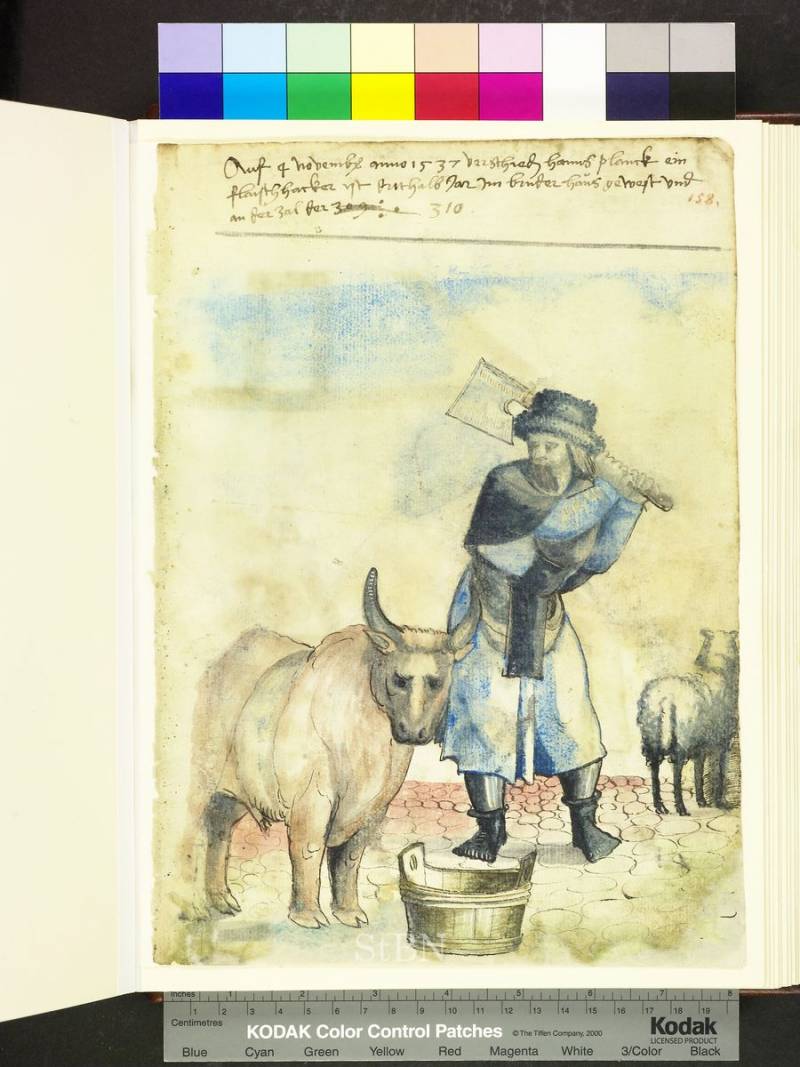 Auf 4 novemb anno 1537 verschied hanns planck ein
flaischhacker ist drithalb Jar Im bruder haus gewest und
158.
an der zal der 310
StBN
Inches 1 2 3 4 5 6 7 8
Centimetres 1 2 3 4 5 6 7 8 9 10 11 12 13 14 15 16 17 18 19
KODAK Color Control Patches © The Tiffen Company, 2000 Kodak
LICENSED PRODUCT
Blue Cyan Green Yellow Red Magenta White 3/Color Black